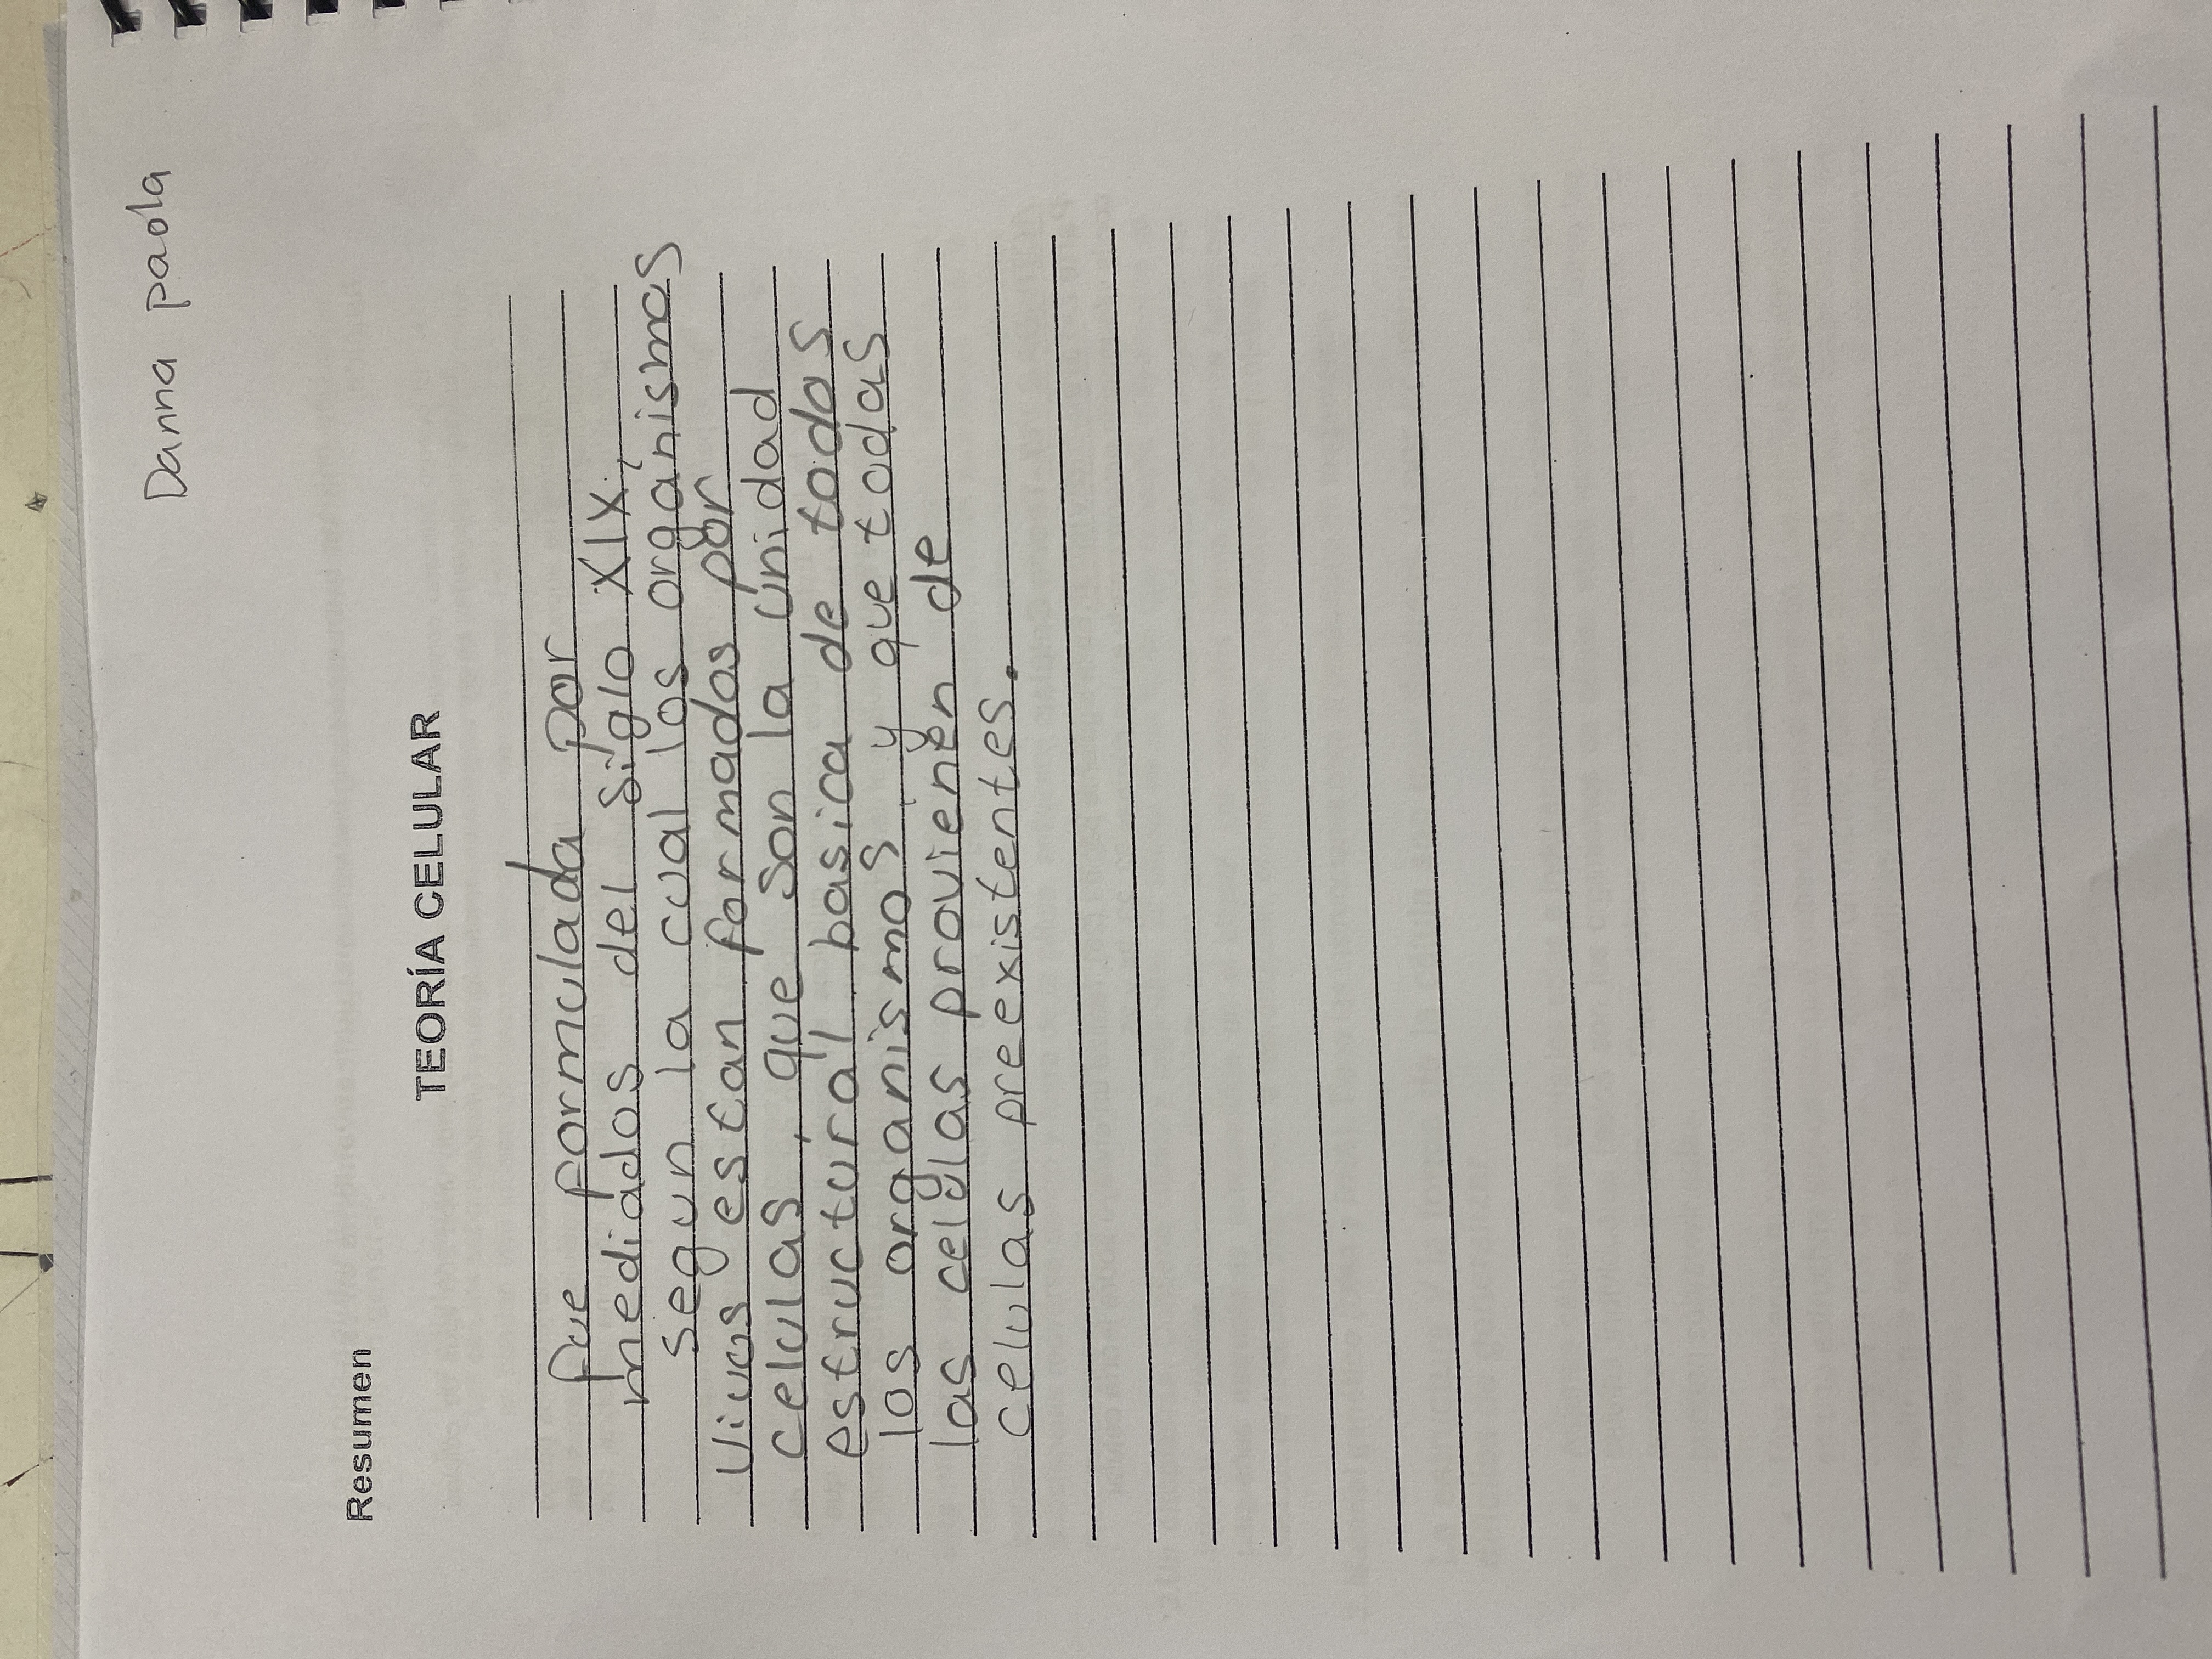 Danna paola
Resumen
TEORÍA CELULAR
fue formulada por
mediados del siglo XIX,
segun la cual los organismos
Vivos estan formados por
celulas, que son la unidad
estructural basica de todos
los organismos, y que todas
las celulas provienen de
celulas preexistentes.